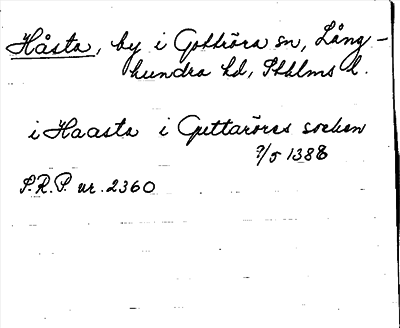 Håsta, by i Gottröra sn, Lång-
hundra hd, Sthlms l.
i Haasta i Guttaröres socken
9/5 1388
S.R.P. nr. 2360